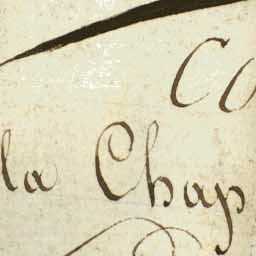 Co
la Chap